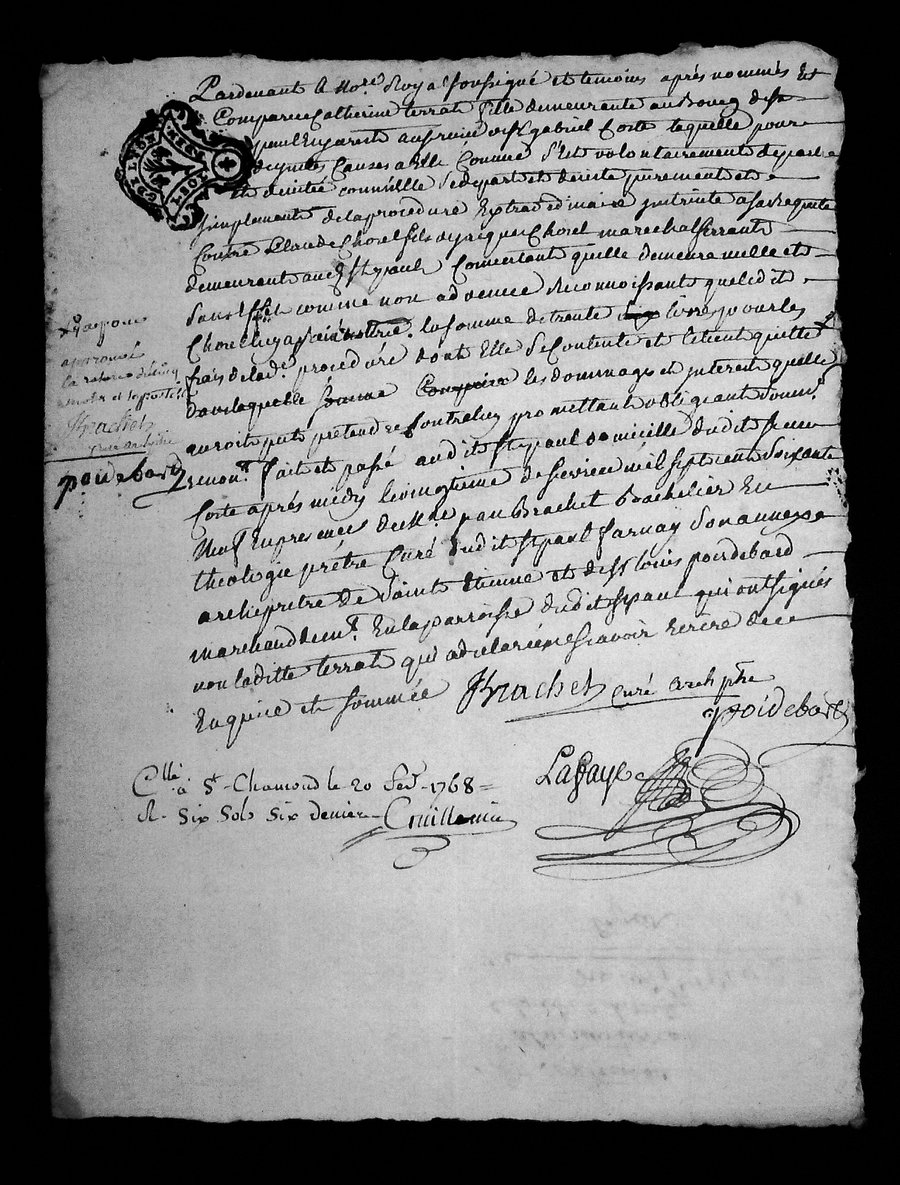 Pardevant le No.re Royal soussigné et temoins aprés nommés Est
Comparue Catherine terrat fille demeurante au Bourg de St
paul En Jarest au service de St gabriel Coste laquelle pour
de justes Causes a Elle Connue s'est volontairement departie
Et desistée comme Elle se depart et desiste purement et
simplement de la procedure Extraordinaire instruite a sa Requete
Contre Claude Chorel fils de jacques Chorel marechal ferrant
demeurant aud. St paul Consentant quelle demeure nulle et
Sans Effet comme non advenue Reconnoissante que ledit
Chorel luy a la somme de trente livres pour les
frais de lad.e procedure dont Elle Se Contente et l'en tient quitte
de laquelle somme les dommages et interest quelle
auroit pu pretendre Contre luy promettant obligeant Soumt.
renont. fait et passé audit St paul domicille dudit Sieur
Coste aprés midy le vingtieme de fevrier mil sept cent Soixante
Neuf En presence de Mre jean Brachet Bachelier En
theologie prêtre Curé dudit St paul farnay Son annexe
archiprêtre de Saint Etienne et de Sr louis poidebard
marchand demt. En la parroisse dudit St paul qui ont signés
non laditte terrat qui a declaré ne Scavoir Ecrire de ce
Enquise et Sommée JBrachet curé archiptre
poidebard
aprouvé
la rature de cinq
mots
JBrachet
curé archiptre
poidebard
Lafaye
Cllé à St. Chamond le 20 fevr. 1768
R. Six Sols Six deniers Cruillemin
LYON